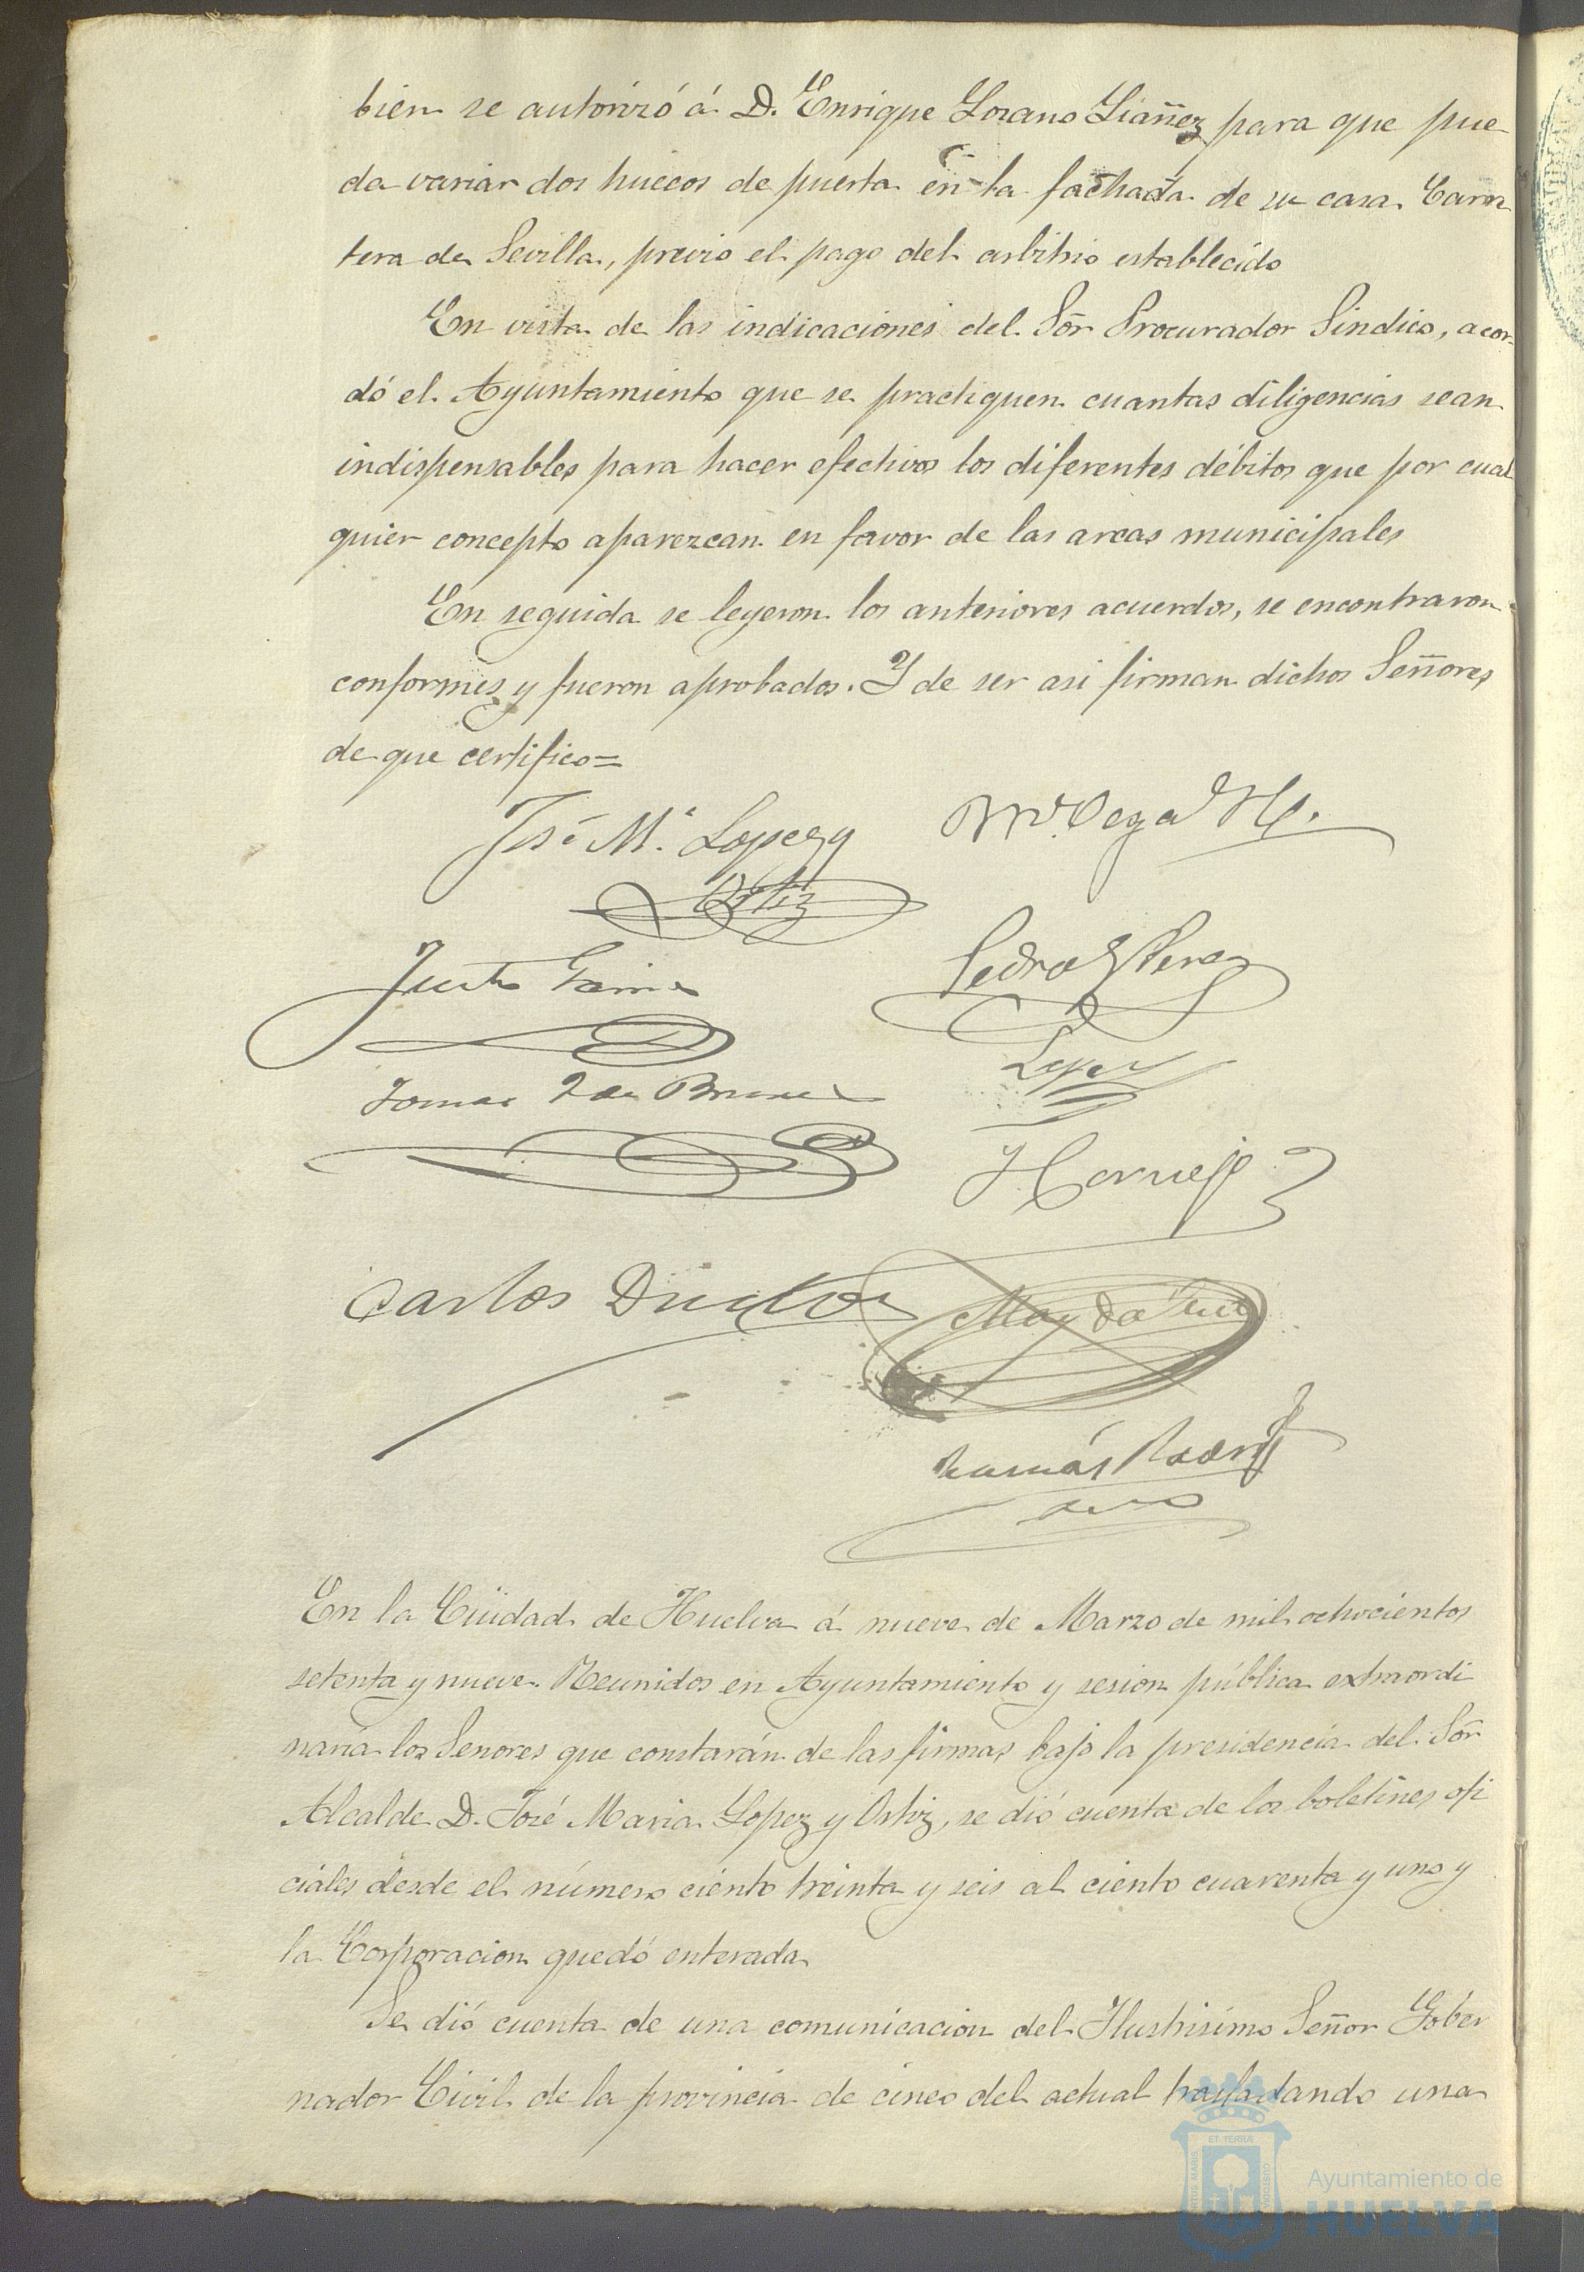 bien se autorizó á D. Enrique Lozano Liáñez para que pue-
da variar dos huecos de puerta en la fachada de su casa Carre
tera de Sevilla, previo el pago del arbitrio establecido
En vista de las indicaciones del Sōr Procurador Sindico, acor-
dó el Ayuntamiento que se practiquen cuantas diligencias sean
indispensables para hacer efectivos los diferentes débitos que por cual
quier concepto aparezcan en favor de las arcas municipales
En seguida se leyeron los anteriores acuerdos, se encontraron
conformes y fueron aprobados. Y de ser asi firman dichos Señores
de que certifico=
José M.ª Lopez y
Ortiz
Vega
Justo
Pedro Perez
Lopez
Tomas
Carlos
Tomás
En la Ciudad de Huelva á nueve de Marzo de mil ochocientos
setenta y nueve. Reunidos en Ayuntamiento y sesion pública extraordi
naria los Senores que constarán de las firmas bajo la presidencia del Sōr
Alcalde D. José Maria Lopez y Ortiz, se dió cuenta de los boletines ofi
ciales desde el número ciento treinta y seis al ciento cuarenta y uno y
la Corporacion quedó enterada
Se dió cuenta de una comunicacion del Ilustrisimo Señor Gober
nador Civil de la provincia de cinco del actual trasladando una
ET TERRA
PORTUS MARIS
CUSTODIA
Ayuntamiento de
HUELVA